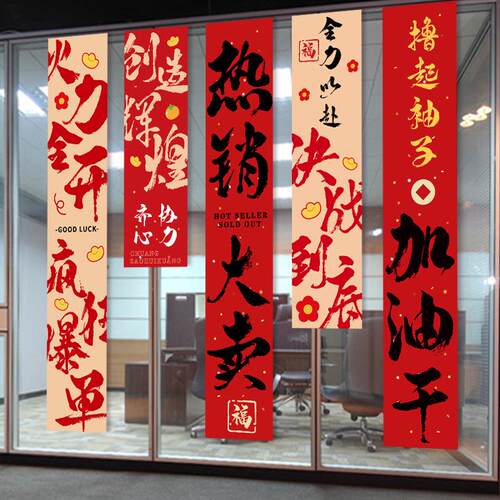 火力全开
-GOOD LUCK-
疯狂爆单
创造辉煌
齐心
协力
CHUANG
热销
HOT SELLER
SOLD OUT
大卖
福
全力以赴
福
决战到底
撸起袖子
加油干